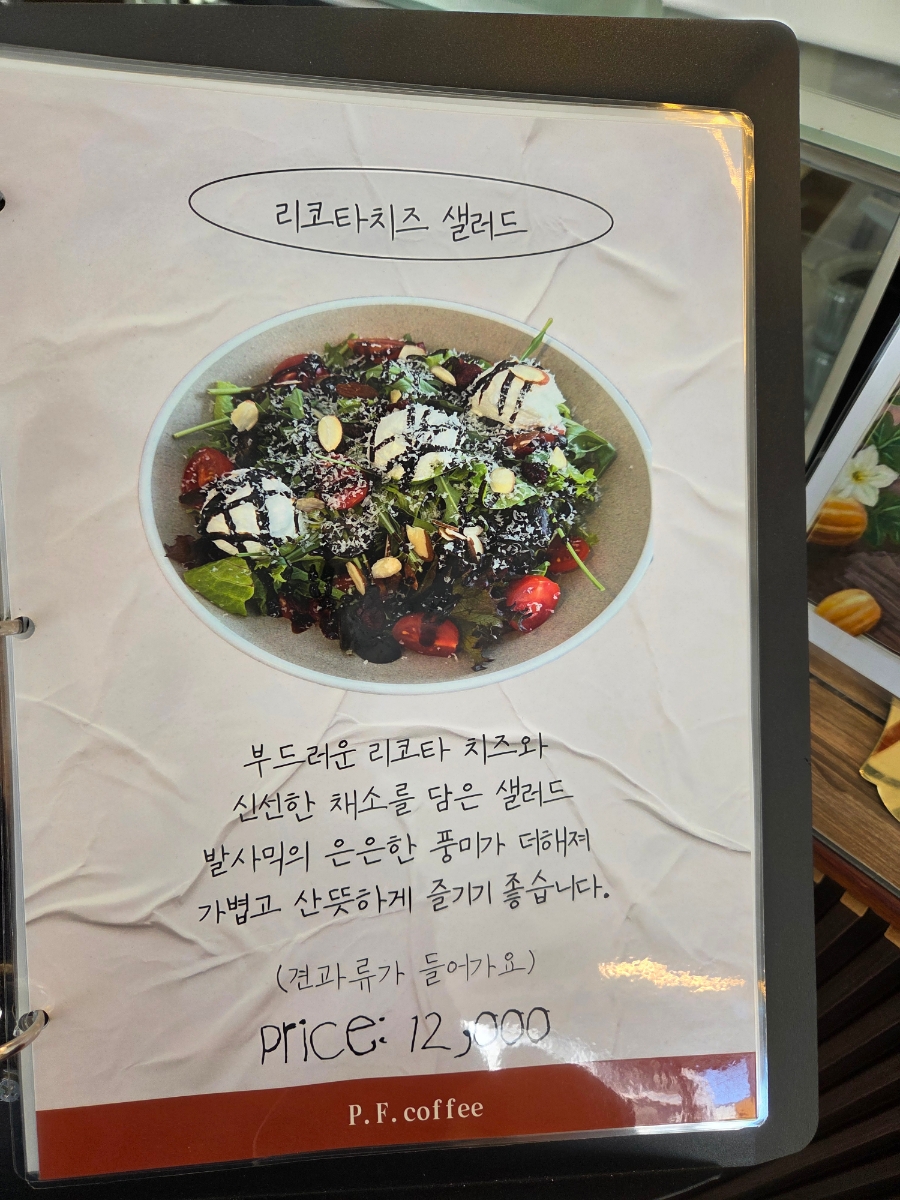 리코타치즈 샐러드
부드러운 리코타 치즈와
신선한 채소를 담은 샐러드
발사믹의 은은한 풍미가 더해져
가볍고 산뜻하게 즐기기 좋습니다.
(견과류가 들어가요)
price: 12,000
P.F.coffee